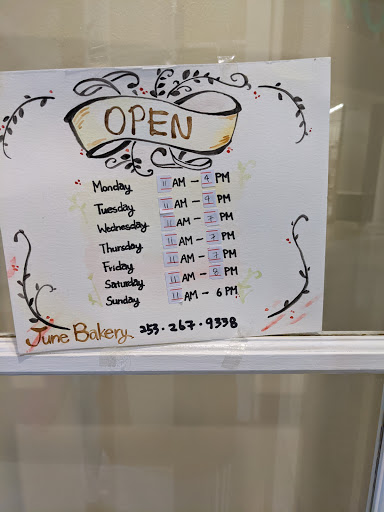 OPEN
Monday 11 AM – 4 PM
Tuesday 11 AM – 9 PM
Wednesday 11 AM – 7 PM
Thursday 11 AM – 7 PM
Friday 11 AM – 7 PM
Saturday 11 AM – 8 PM
Sunday 11 AM – 6 PM
June Bakery 253·267·9338